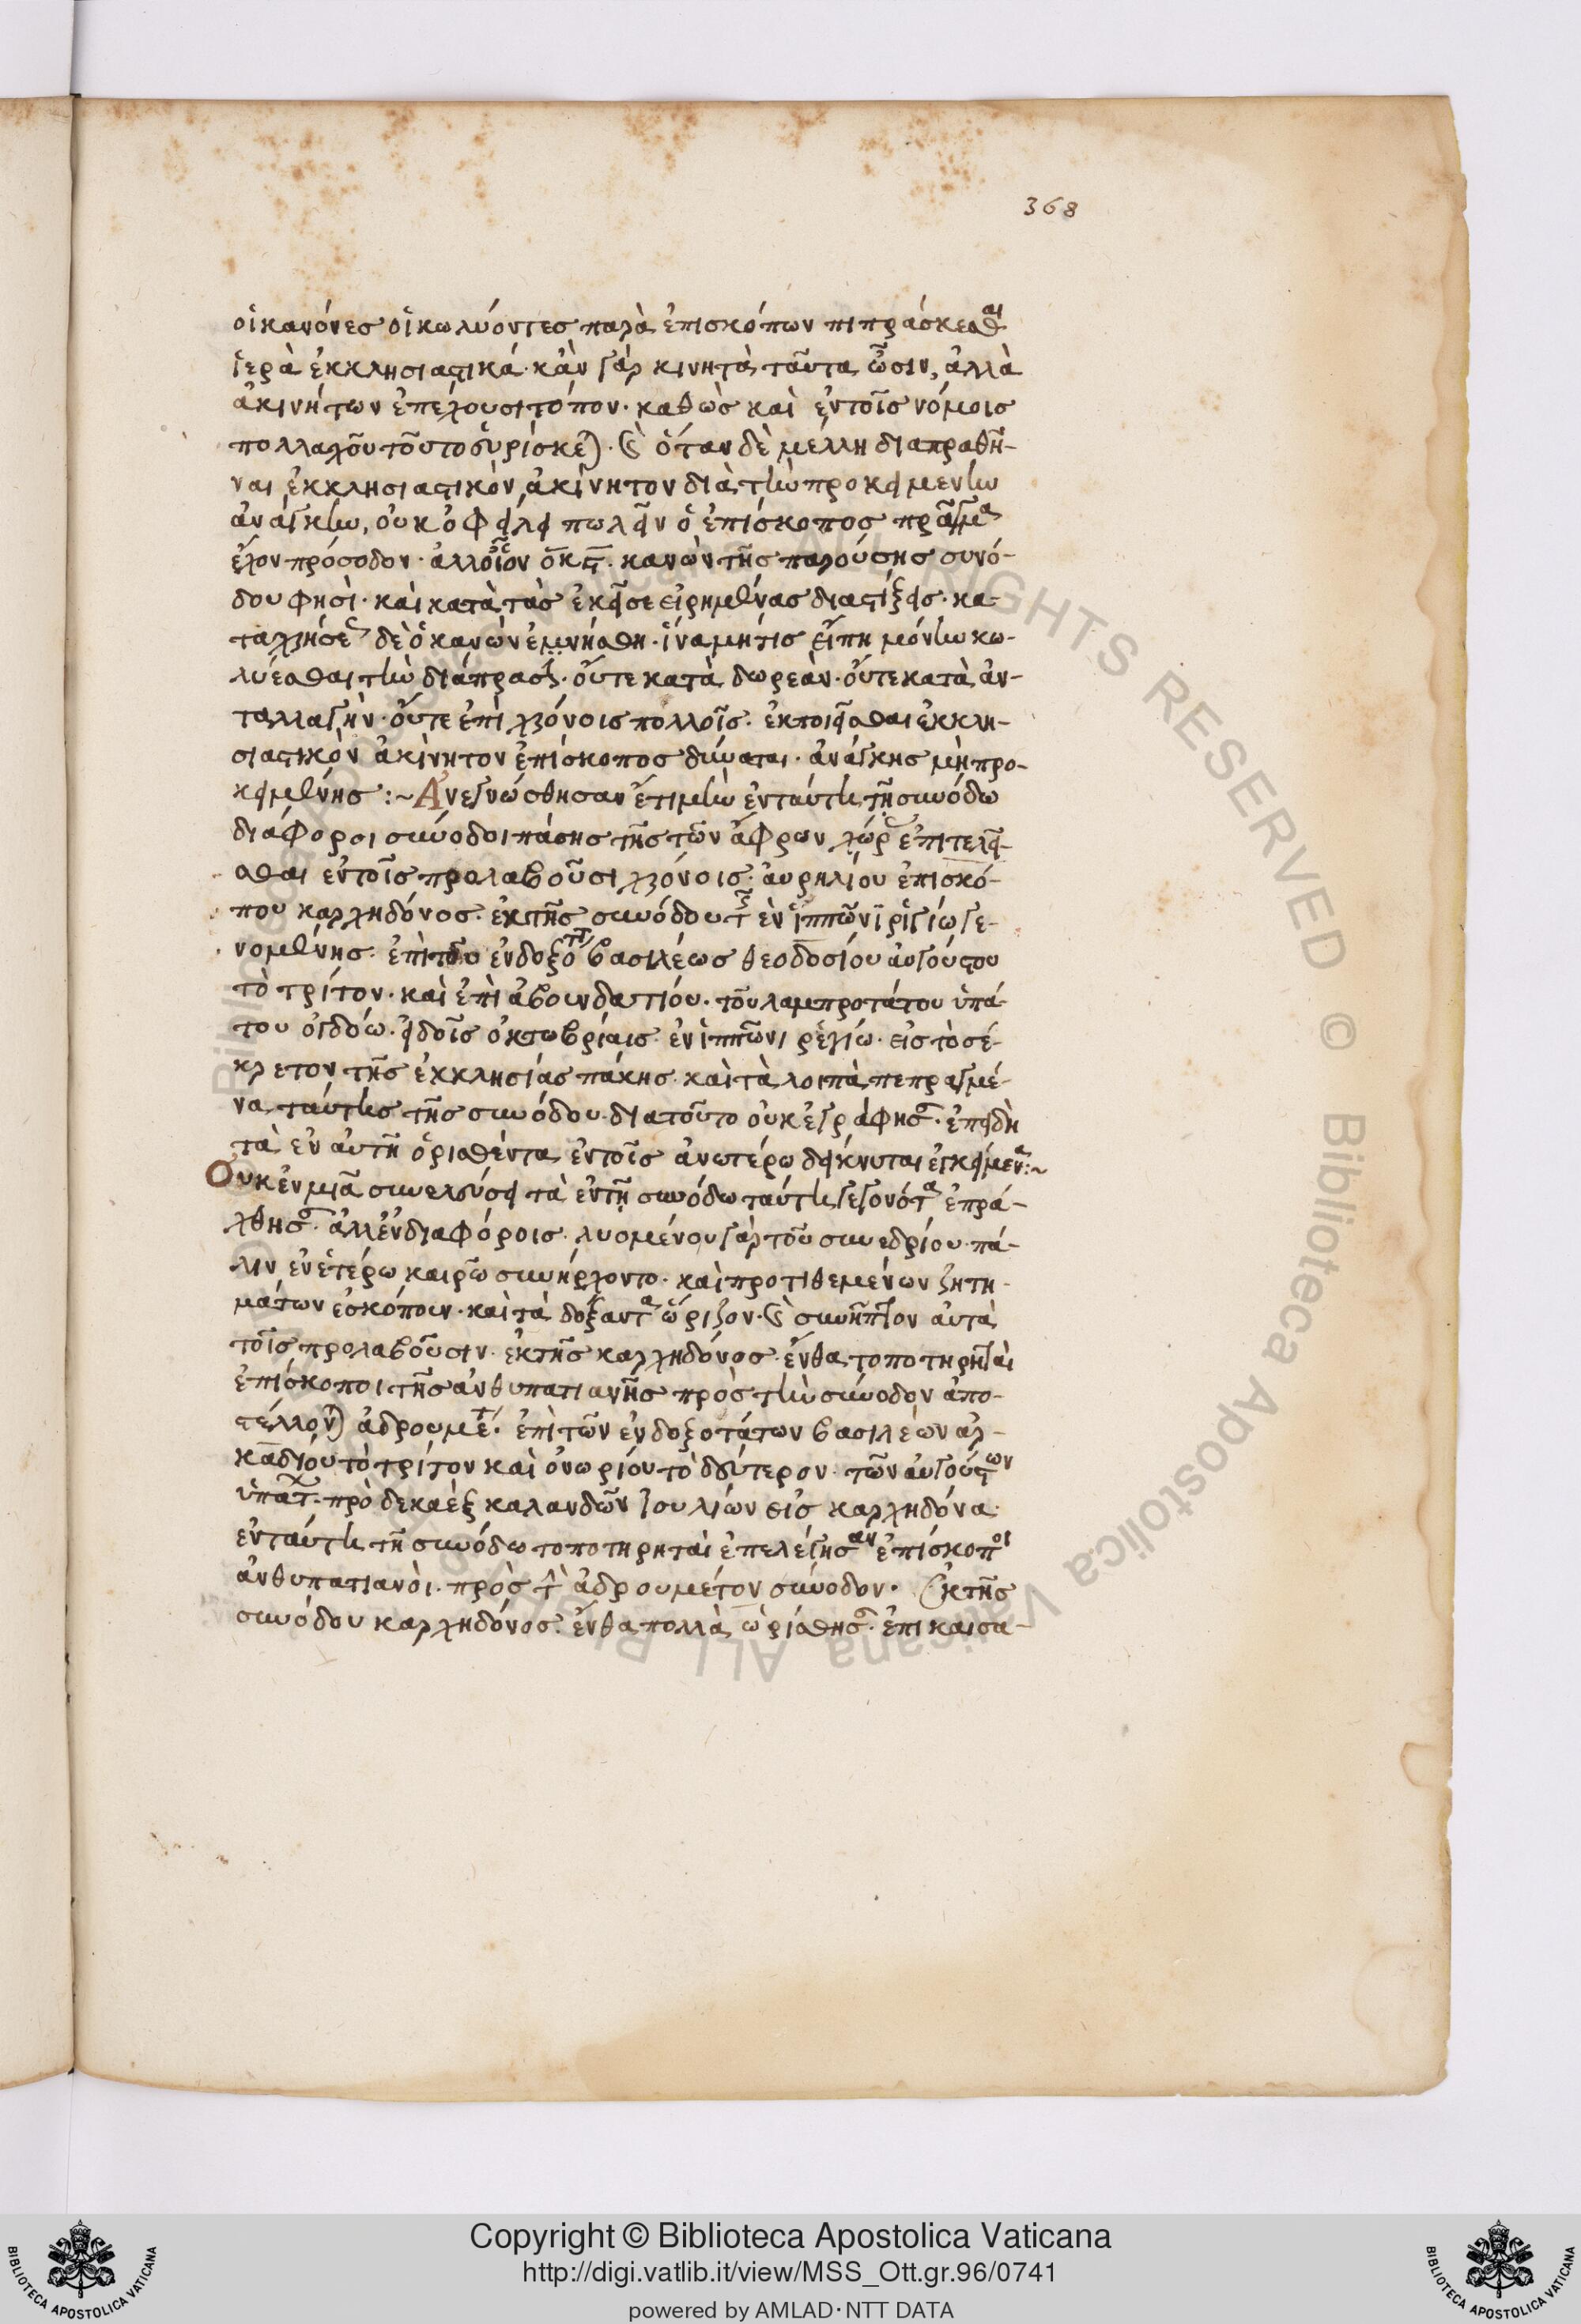 368
οἱ κανόνες οἱ κωλύοντες παρὰ ἐπισκόπων πιπράσκεσθαι
ἱερὰ ἐκκλησιαστικά· κἂν γὰρ κινητὰ ταῦτα ὦσιν, ἀλλὰ
ἀκινήτων ἐπέχουσι τόπον· καθὼς καὶ ἐν τοῖς νόμοις
πολλαχοῦ τοῦτο εὑρίσκεται· καὶ ὅταν δὲ μέλλη διαπραθῆ-
ναι ἐκκλησιαστικὸν ἀκίνητον διὰ τὴν προκειμένην
ἀνάγκην, οὐκ ὀφείλει πωλεῖν ὁ ἐπίσκοπος πρᾶγμα
ἔχον πρόσοδον· κανὼν τῆς παρούσης συνό-
δου φησὶ· καὶ κατὰ τὰς ἐκεῖσε εἰρημένας διαστίξεις· κα-
ταχρήσε δὲ ὁ κανὼν ἐμνήσθη· ἵνα μήτις εἴπη μόνην κω-
λύεσθαι τὴν διάπρασιν· οὔτε κατὰ δωρεὰν· οὔτε κατὰ ἀν-
ταλλαγὴν· οὔτε ἐπὶ χρόνοις πολλοῖς· ἐκποιεῖσθαι ἐκκλη-
σιαστικὸν ἀκίνητον ἐπίσκοπος δύναται· ἀνάγκης μὴ προ-
κειμένης :~ Ἀνεγνώσθησαν ἔτι μὴν ἐν ταύτη τῆ συνόδω
διάφοροι σύνοδοι πάσης τῆς τῶν ἄφρων χώρας ἐπιτελεῖ-
σθαι ἐν τοῖς προλαβοῦσι χρόνοις· αὐρηλίου ἐπισκό-
που καρχηδόνος· ἐκ τῆς συνόδου τῆς ἐν ἱππῶνι ῥιγίω γε-
νομένης· ἐπὶ τοῦ ἐνδοξοτάτου βασιλέως θεοδοσίου αὐγούστου
τὸ τρίτον· καὶ ἐπὶ ἀβουνδατιόυ· τοῦ λαμπροτάτου ὑπά-
του ὀγδόω· εἰδοῖς ὀκτωβρίαις· ἐν ἱππῶνι ῥεγίω· εἰς τὸ σέ-
κρετον τῆς ἐκκλησίας πάκης· καὶ τὰ λοιπὰ πεπραγμέ-
να ταύτης τῆς συνόδου· διατοῦτο οὐκ ἐγράφησαν· ἐπειδὴ
τὰ ἐν αὐτῆ ὁρισθέντα ἐν τοῖς ἀνωτέρω δείκνυται ἐγκείμενα :~
Οὐκ ἐν μιᾶ συνελεύσει τὰ ἐν τῆ συνόδω ταύτη γεγονότα ἐπρά-
χθησαν· ἀλλ' ἐν διαφόροις· λυομένου γὰρ τοῦ συνεδρίου· πά-
λιν ἐν ἑτέρω καιρῶ συνήρχοντο· καὶ προτιθεμένων ζητη-
μάτων ἐσκόπουν· καὶ τὰ δόξαντα ὥριζον· καὶ συνῆπτον αὐτὰ
τοῖς προλαβοῦσιν· ἐκ τῆς καρχηδόνος· ἔνθα τοποτηρηταὶ
ἐπίσκοποι τῆς ἀνθυπατιανῆς πρὸς τὴν σύνοδον ἀπο-
στέλλονται ἀδρουμέτ· ἐπὶ τῶν ἐνδοξοτάτων βασιλέων ἀρ-
καδίου τὸ τρίτον καὶ ὀνωρίου τὸ δεύτερον· τῶν αὐγούστων
ὑπάτ· πρὸ δεκαὲξ καλανδῶν ἰουλίων εἰς καρχηδόνα·
ἐν ταύτη τῆ συνόδω τοποτηρηταὶ ἐπελέγησαν ἐπίσκοποι
ἀνθυπατιανὸι· πρὸς τὴν ἀδρουμέτον σύνοδον· ἐκ τῆς
συνόδου καρχηδόνος· ἔνθα πολλὰ ὡρίσθησαν· ἐπι καισα-
Copyright © Biblioteca Apostolica Vaticana
http://digi.vatlib.it/view/MSS_Ott.gr.96/0741
powered by AMLAD·NTT DATA